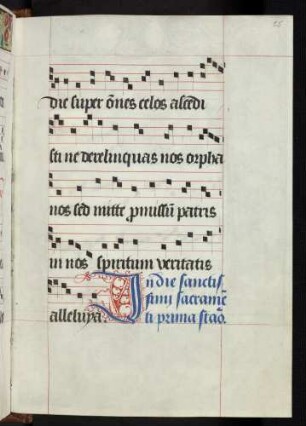 die super õnes celos ascedi
sti ne derelinquas nos orpha
nos sed mitte ꝓmissũ patris
in nos spiritum veritatis
alleluya In die sanctis
simi sacramẽ
ti prima stão.